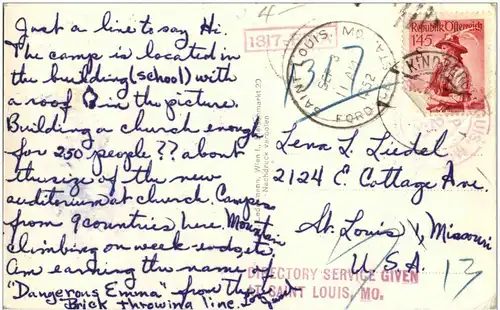 Just a line to say Hi.
The camp is located in
the building (school) with
a roof in the picture.
Building a church enough
for 250 people?? about
the size of the new
auditorium at church. Campers
from 9 countries here. Mountain
climbing on week-ends etc
Am earning this name of
"Dangerous Emma" from the
Brick throwing line.
4
1317
1317
SAINT LOUIS, MO.
SEP
11 AM
FORD
Republik Österreich
145
Wien I.,
Nachdruck verboten
Lena L. Liedel
2124 E. Cottage Ave.
St. Louis 1, Missouri
U.S.A.
13
DIRECTORY SERVICE GIVEN
AT SAINT LOUIS, MO.